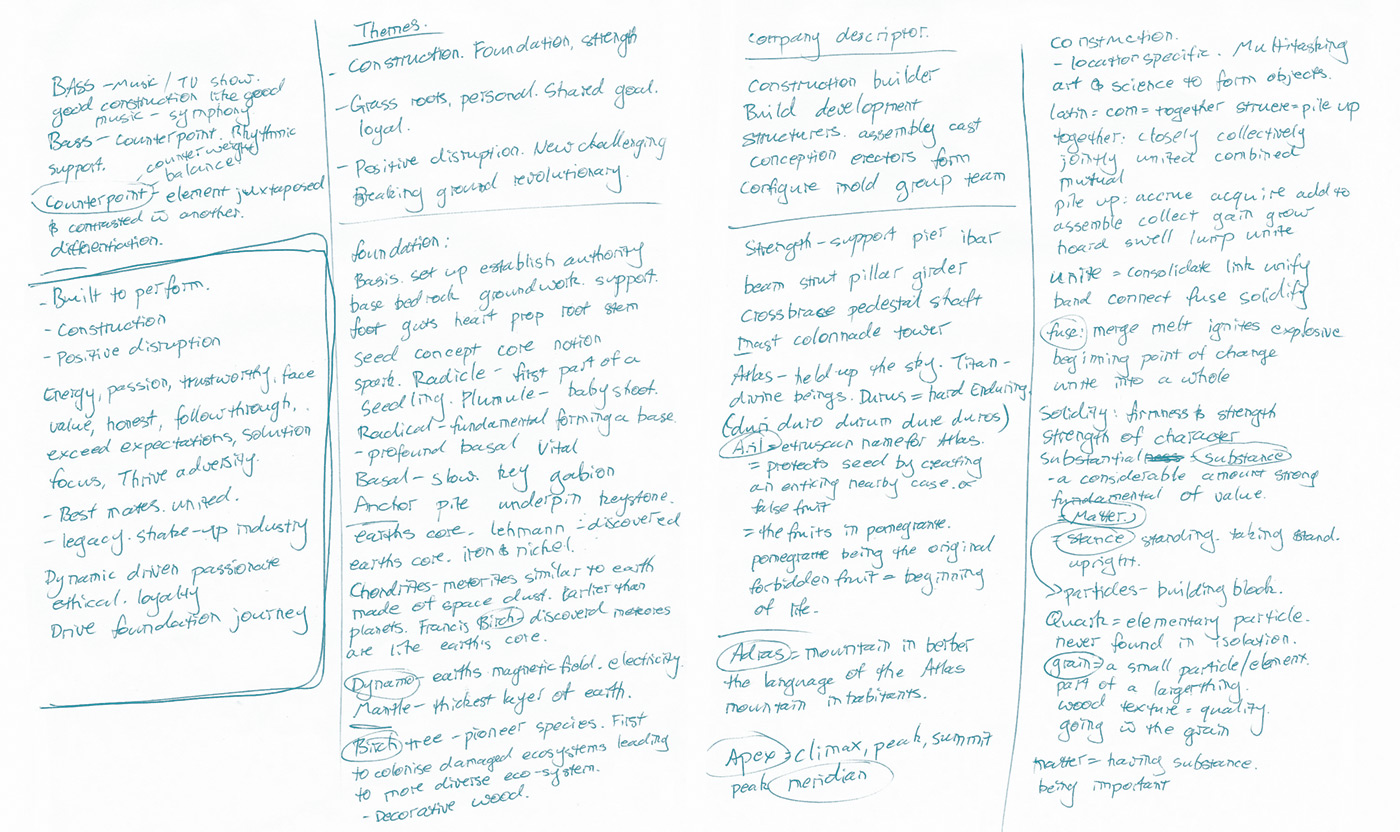 BASS - Music / TV show.
good construction like good
music - symphony
Bass - counterpoint. Rhythmic
support.
counterweight
balance
Counterpoint - element juxtaposed
& contrasted w another.
differentiation.
- Built to perform.
- Construction
- Positive disruption
Energy, passion, trustworthy, face
value, honest, follow through,
exceed expectations, solution
focus, Thrive adversity.
- Best mates. united.
- legacy. shake-up industry
Dynamic driven passionate
ethical. loyalty
Drive foundation journey
Themes.
- Construction. Foundation, strength
- Grass roots, personal. Shared goal.
loyal.
- Positive disruption. New challenging
Breaking ground revolutionary.
foundation:
Basis. set up establish authority
base bedrock groundwork. support.
foot guts heart prop root stem
seed concept core notion
spark. Radicle - first part of a
seedling. Plumule - baby shoot.
Radical - fundamental forming a base.
- profound basal Vital
Basal - slow. key gabion
Anchor pile underpin keystone.
earths core. lehmann - discovered
earths core. iron & nickel.
Chondrites - meteorites similar to earth
made of space dust. Earlier than
planets. Francis Birch discovered meteores
are like earth's core.
Dynamo - earths magnetic field. electricity.
Mantle - thickest layer of earth.
Birch tree - pioneer species. First
to colonise damaged ecosystems leading
to more diverse eco-system.
- Decorative wood.
company descriptor.
Construction builder
Build development
structurers. assembly cast
conception erectors form
configure mold group team
Strength - support pier ibar
beam strut pillar girder
crossbrace pedestal shaft
Mast colonnade tower
Atlas - held up the sky. Titan -
divine beings. Durus = hard Enduring.
(duri duro durum dure duros)
Aril = etruscan name for Atlas.
= protects seed by creating
an enticing nearby case. or
false fruit
= the fruits in pomegrante.
pomegrante being the original
forbidden fruit = beginning
of life.
Adras = mountain in berber
the language of the Atlas
mountain inhabitants.
Apex > climax, peak, summit
peak meridian
construction.
- location specific. Multitasking
art & science to form objects.
latin = com = together struere = pile up
together: closely collectively
jointly united combined
mutual
pile up: accrue acquire add to
assemble collect gain grow
hoard swell lump unite
unite = consolidate link unify
band connect fuse solidify
fuse: merge melt ignites explosive
beginning point of change
unite into a whole
Solidity: firmness & strength
strength of character
substantial ness = substance
- a considerable amount strong
fundamental of value.
= Matter.
= stance standing. taking stand.
upright.
> particles - building block.
Quark = elementary particle.
never found in isolation.
grain = a small particle/element.
part of a larger thing.
wood texture = quality.
going w the grain
matter = having substance.
being important